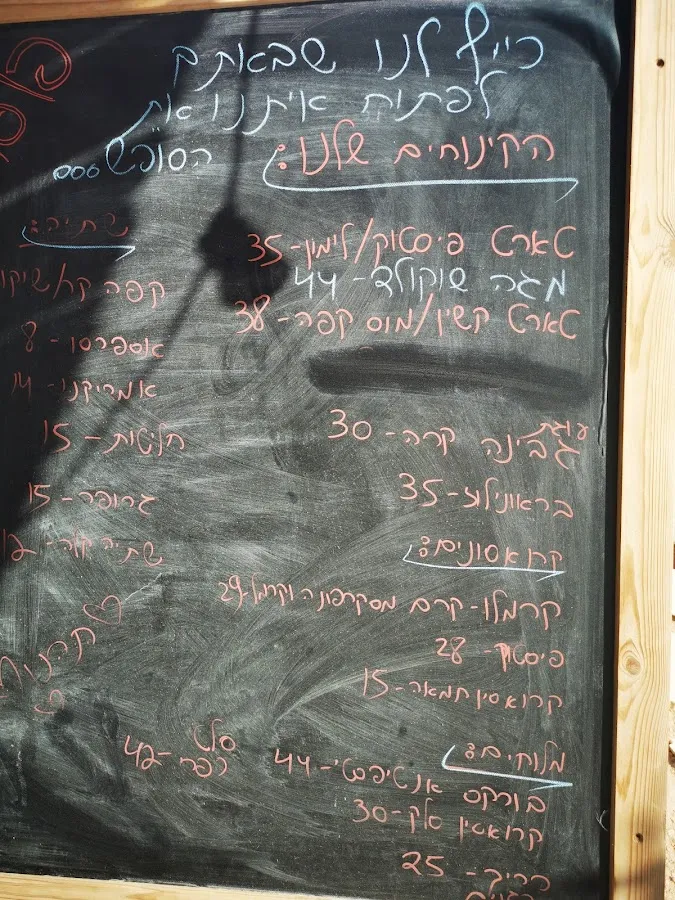 כייף לנו שבאתם
לפתוח איתנו את
הסופש...
הקינוחים שלנו:
טארט פיסטוק/לימון-35
מגה שוקולד-44
טארט קשיו/מוס קפה-38
עוגת
גבינה קרה-30
בראונילוצ-35
קרואסונים:
קרמלו-קרם מסקרפונה וקרמל-29
פיסטוק-28
קרואסין חמאה-15
מלוחים:
בורקס אנטיפסטי-44
קרואסין סלק-30
כריך-25
סלט
כפרי-42
שתיה:
קפה קר/שיקו
אספרסו-8
אמריקנו-14
חליטות-15
גרופר-15
שתיה קלה-12
תהנו